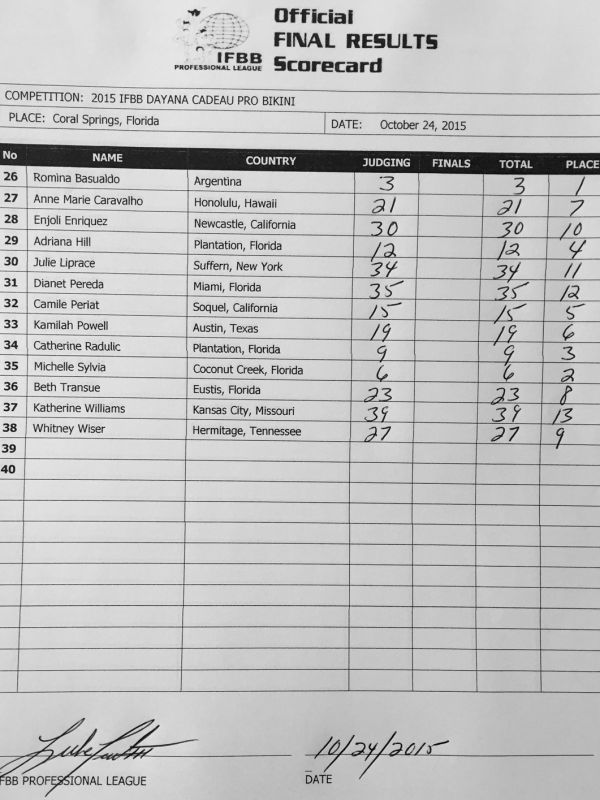 Official
FINAL RESULTS
Scorecard
IFBB
PROFESSIONAL LEAGUE
COMPETITION: 2015 IFBB DAYANA CADEAU PRO BIKINI
PLACE: Coral Springs, Florida DATE: October 24, 2015
No NAME COUNTRY JUDGING FINALS TOTAL PLACE
26 Romina Basualdo Argentina 3 3 1
27 Anne Marie Caravalho Honolulu, Hawaii 21 21 7
28 Enjoli Enriquez Newcastle, California 30 30 10
29 Adriana Hill Plantation, Florida 12 12 4
30 Julie Liprace Suffern, New York 34 34 11
31 Dianet Pereda Miami, Florida 35 35 12
32 Camile Periat Soquel, California 15 15 5
33 Kamilah Powell Austin, Texas 19 19 6
34 Catherine Radulic Plantation, Florida 9 9 3
35 Michelle Sylvia Coconut Creek, Florida 6 6 2
36 Beth Transue Eustis, Florida 23 23 8
37 Katherine Williams Kansas City, Missouri 39 39 13
38 Whitney Wiser Hermitage, Tennessee 27 27 9
39
40
10/24/2015
FBB PROFESSIONAL LEAGUE DATE